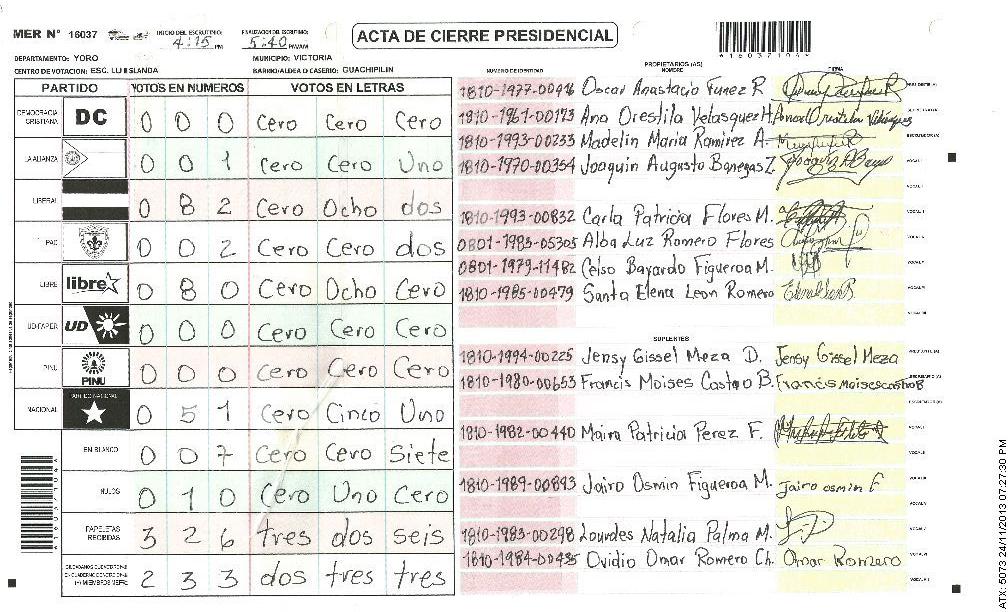 MER N° 16037
INICIO DEL ESCRUTINIO: 4:15 PM
FINALIZACION DEL ESCRUTINIO: 5:40 PM/AM
ACTA DE CIERRE PRESIDENCIAL
*16037104*
DEPARTAMENTO: YORO
MUNICIPIO: VICTORIA
CENTRO DE VOTACION: ESC. LUIS LANDA
BARRIO/ALDEA O CASERIO: GUACHIPILIN
PARTIDO VOTOS EN NUMEROS VOTOS EN LETRAS
DEMOCRACIA CRISTIANA DC 0 0 0 Cero Cero Cero
LA ALIANZA 0 0 1 Cero Cero Uno
LIBERAL 0 8 2 Cero Ocho dos
PAC 0 0 2 Cero Cero dos
LIBRE libre 0 8 0 Cero Ocho Cero
UD/FAPER UD 0 0 0 Cero Cero Cero
PINU PINU 0 0 0 Cero Cero Cero
NACIONAL PARTIDO NACIONAL 0 5 1 Cero Cinco Uno
EN BLANCO 0 0 7 Cero Cero Siete
NULOS 0 1 0 Cero Uno Cero
PAPELETAS RECIBIDAS 3 2 6 tres dos seis
2 3 3 dos tres tres
NUMERO DE IDENTIDAD
PROPIETARIOS (AS)
NOMBRE
FIRMA
1810-1977-00496 Oscar Anastacio Funez R
1810-1961-00173 Ana Oreslila Velasquez H.
1810-1993-00233 Madelin Maria Ramirez A.
1810-1970-00354 Joaquin Augusto Banegas Z.
1810-1993-00832 Carla Patricia Flores M.
0801-1983-05305 Alba Luz Romero Flores
0801-1979-11482 Celso Bayardo Figueroa M.
1810-1985-00479 Santa Elena Leon Romero
SUPLENTES
1810-1994-00225 Jensy Gissel Meza D. Jensy Gissel Meza
1810-1980-00653 Francis Moises Castro B. Francis moises castro B
1810-1982-00440 Maira Patricia Perez F.
1810-1989-00893 Jairo Osmin Figueroa M. Jairo osmin F
1810-1983-00298 Lourdes Natalia Palma M.
1810-1984-00435 Ovidio Omar Romero Ch. Omar Romero
ATX: 5073 24/11/2013 07:27:30 PM